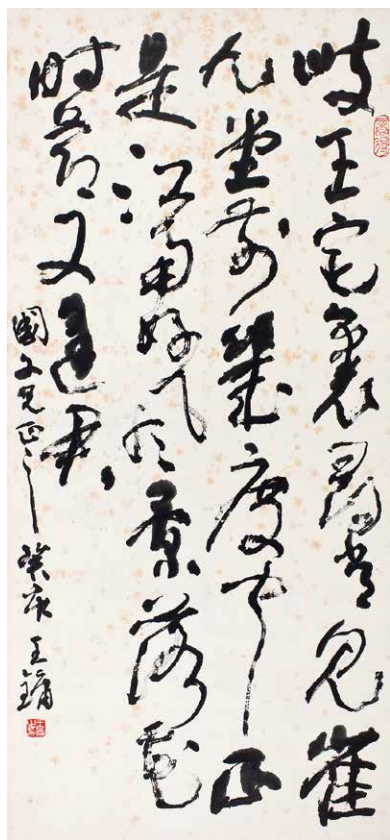 岐王宅裏尋常見崔
九堂前幾度聞正
是江南好風景落花
时節又逢君
國文兄正之 癸亥 王鏞